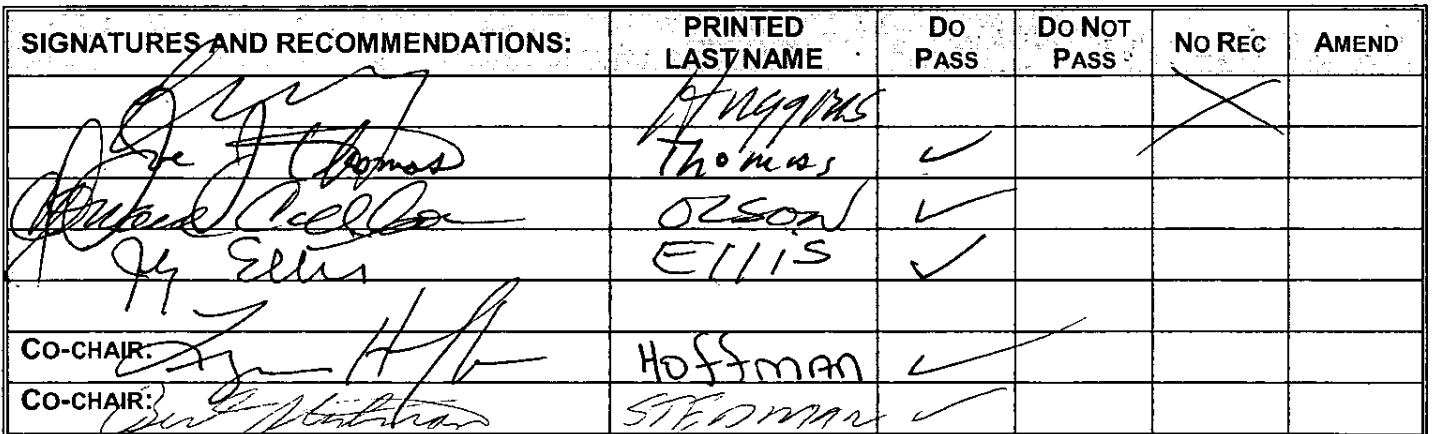 SIGNATURES AND RECOMMENDATIONS: PRINTED LAST NAME DO PASS DO NOT PASS NO REC AMEND
Huggins
Thomas Thomas ✓
OLSON ✓
Ellis EllIS ✓
CO-CHAIR: HOFFMAN ✓
CO-CHAIR: Bert Stedman STEDMAN ✓